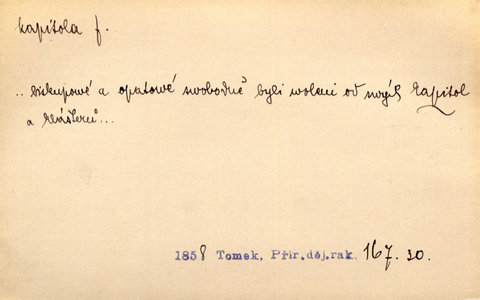 kapitola f.
.. biskupové a opatové svobodně byli woleni od svých kapitol
a klášterů...
1858 Tomek. Přír.děj.rak. 167. 30.